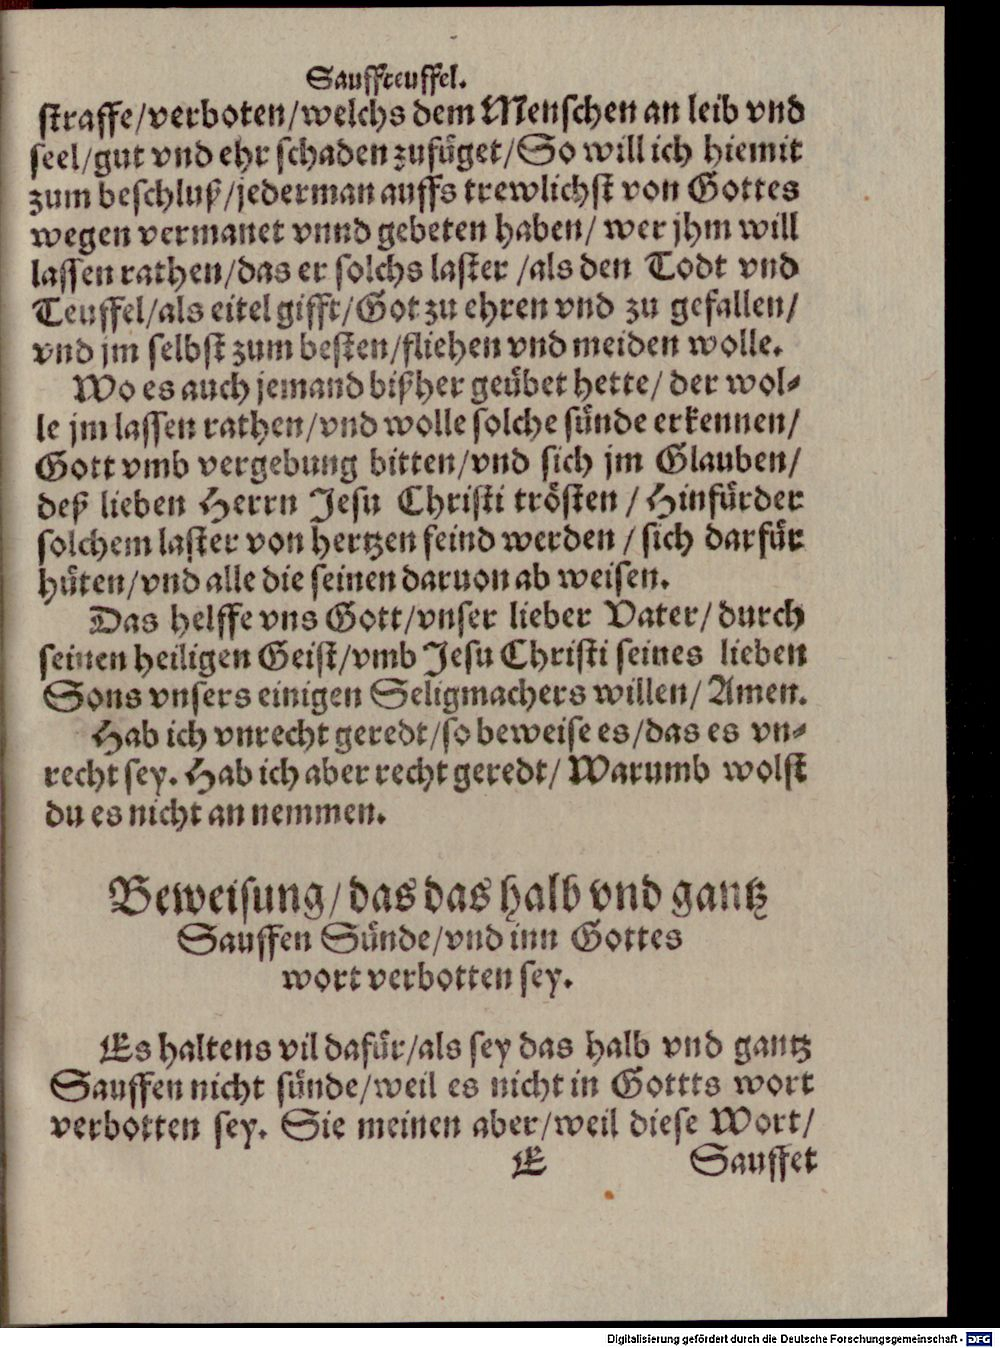 Sauffteuffel.
straffe/verboten/welchs dem Menschen an leib vnd
seel/gut vnd ehr schaden zufüget/So will ich hiemit
zum beschluß/jederman auffs trewlichst von Gottes
wegen vermanet vnnd gebeten haben/ wer jhm will
lassen rathen/das er solchs laster /als den Todt vnd
Teuffel/als eitel gifft/Got zu ehren vnd zu gefallen/
vnd jm selbst zum besten/fliehen vnd meiden wolle.
Wo es auch jemand bißher geübet hette/ der wol-
le jm lassen rathen/vnd wolle solche sünde erkennen/
Gott vmb vergebung bitten/vnd sich jm Glauben/
deß lieben Herrn Jesu Christi trösten / Hinfürder
solchem laster von hertzen feind werden / sich darfür
hüten/vnd alle die seinen daruon ab weisen.
Das helffe vns Gott/vnser lieber Vater/ durch
seinen heiligen Geist/vmb Jesu Christi seines lieben
Sons vnsers einigen Seligmachers willen/ Amen.
Hab ich vnrecht geredt/so beweise es/das es vn-
recht sey. Hab ich aber recht geredt/ Warumb wolst
du es nicht an nemmen.
Beweisung/das das halb vnd gantz
Sauffen Sünde/vnd inn Gottes
wort verbotten sey.
Es haltens vil dafür/als sey das halb vnd gantz
Sauffen nicht sünde/weil es nicht in Gottts wort
verbotten sey. Sie meinen aber/weil diese Wort/
E Sauffet
Digitalisierung gefördert durch die Deutsche Forschungsgemeinschaft - DFG